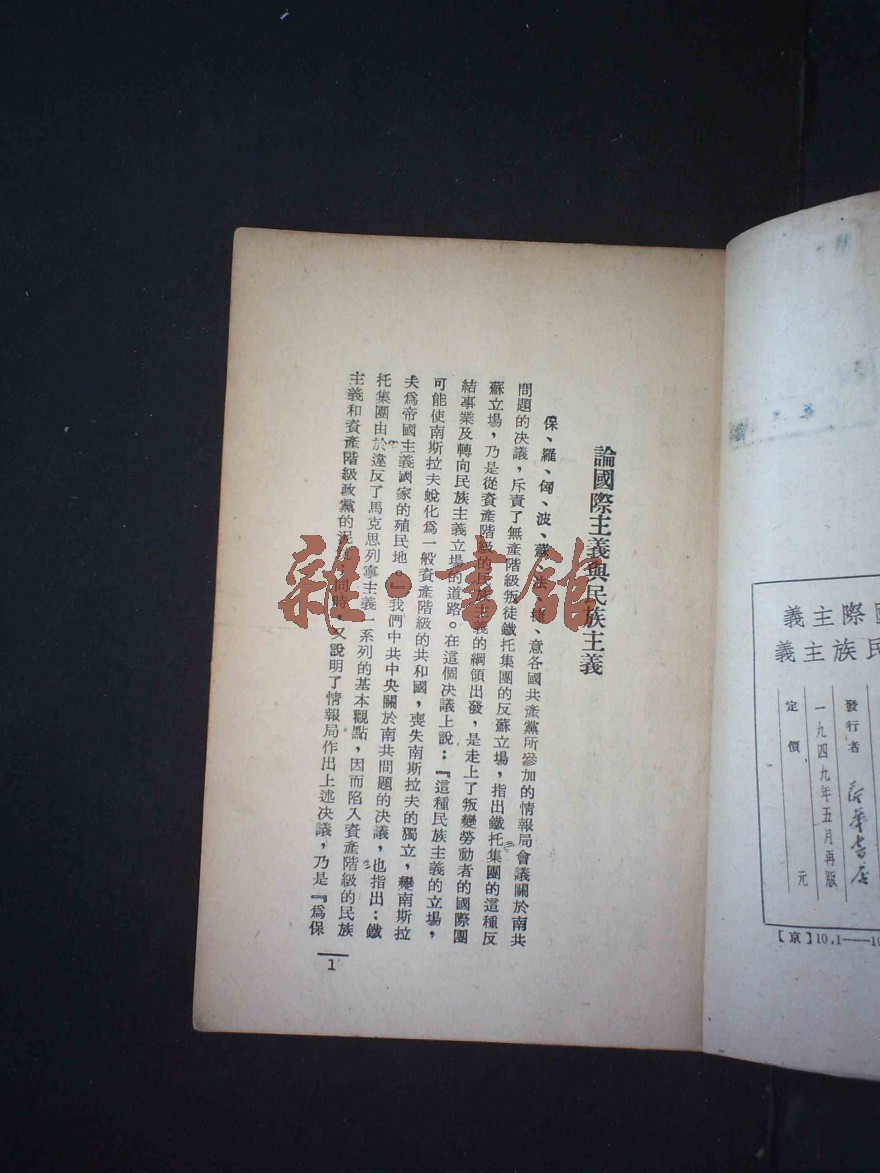 論國際主義與民族主義
保、羅、匈、波、蘇、法、捷、意各國共產黨所參加的情報局會議關於南共
問題的决議，斥責了無產階級叛徒鐵托集團的反蘇立場，指出鐵托集團的這種反
蘇立場，乃是從資產階級的民族主義的綱領出發，是走上了叛變勞動者的國際團
結事業及轉向民族主義立場的道路。在這個决議上說：『這種民族主義的立場，
可能使南斯拉夫蛻化爲一般資產階級的共和國，喪失南斯拉夫的獨立，變南斯拉
夫爲帝國主義國家的殖民地。』我們中共中央關於南共問題的决議，也指出：鐵
托集團由於違反了馬克思列寧主義一系列的基本觀點，因而陷入資產階級的民族
主義和資產階級政黨的泥坑；同時，又說明了情報局作出上述决議，乃是『爲保
1
義主際國
義主族民
發行者 新華書店
一九四九年五月再版
定價 元
【京】10,1——10
雜·書館